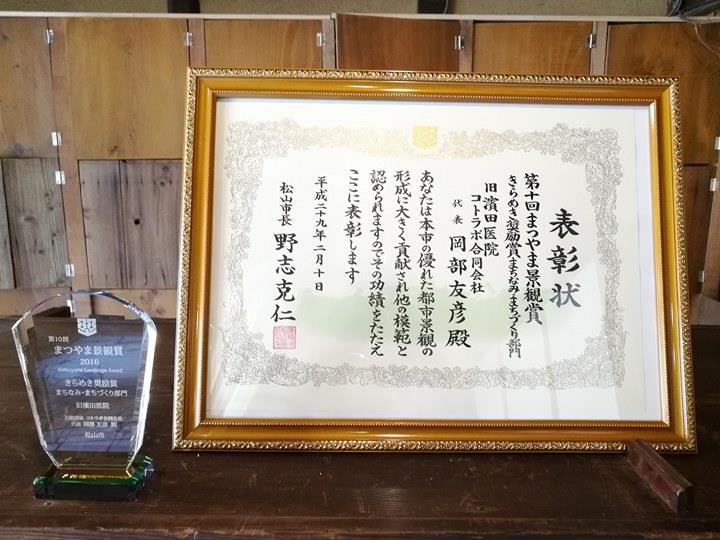 表彰状
第十回まつやま景観賞
きらめき奨励賞 まちなみ・まちづくり部門
旧濱田医院
コトラボ合同会社
代表 岡部友彦 殿
あなたは本市の優れた都市景観の
形成に大きく貢献され他の模範と
認められますのでその功績をたたえ
ここに表彰します
平成二十九年二月十日
松山市長 野志克仁
第10回
まつやま景観賞
2016
Matsuyama Landscape Award
きらめき奨励賞
まちなみ・まちづくり部門
旧濱田医院
コトラボ合同会社
代表 岡部 友彦 殿
松山市